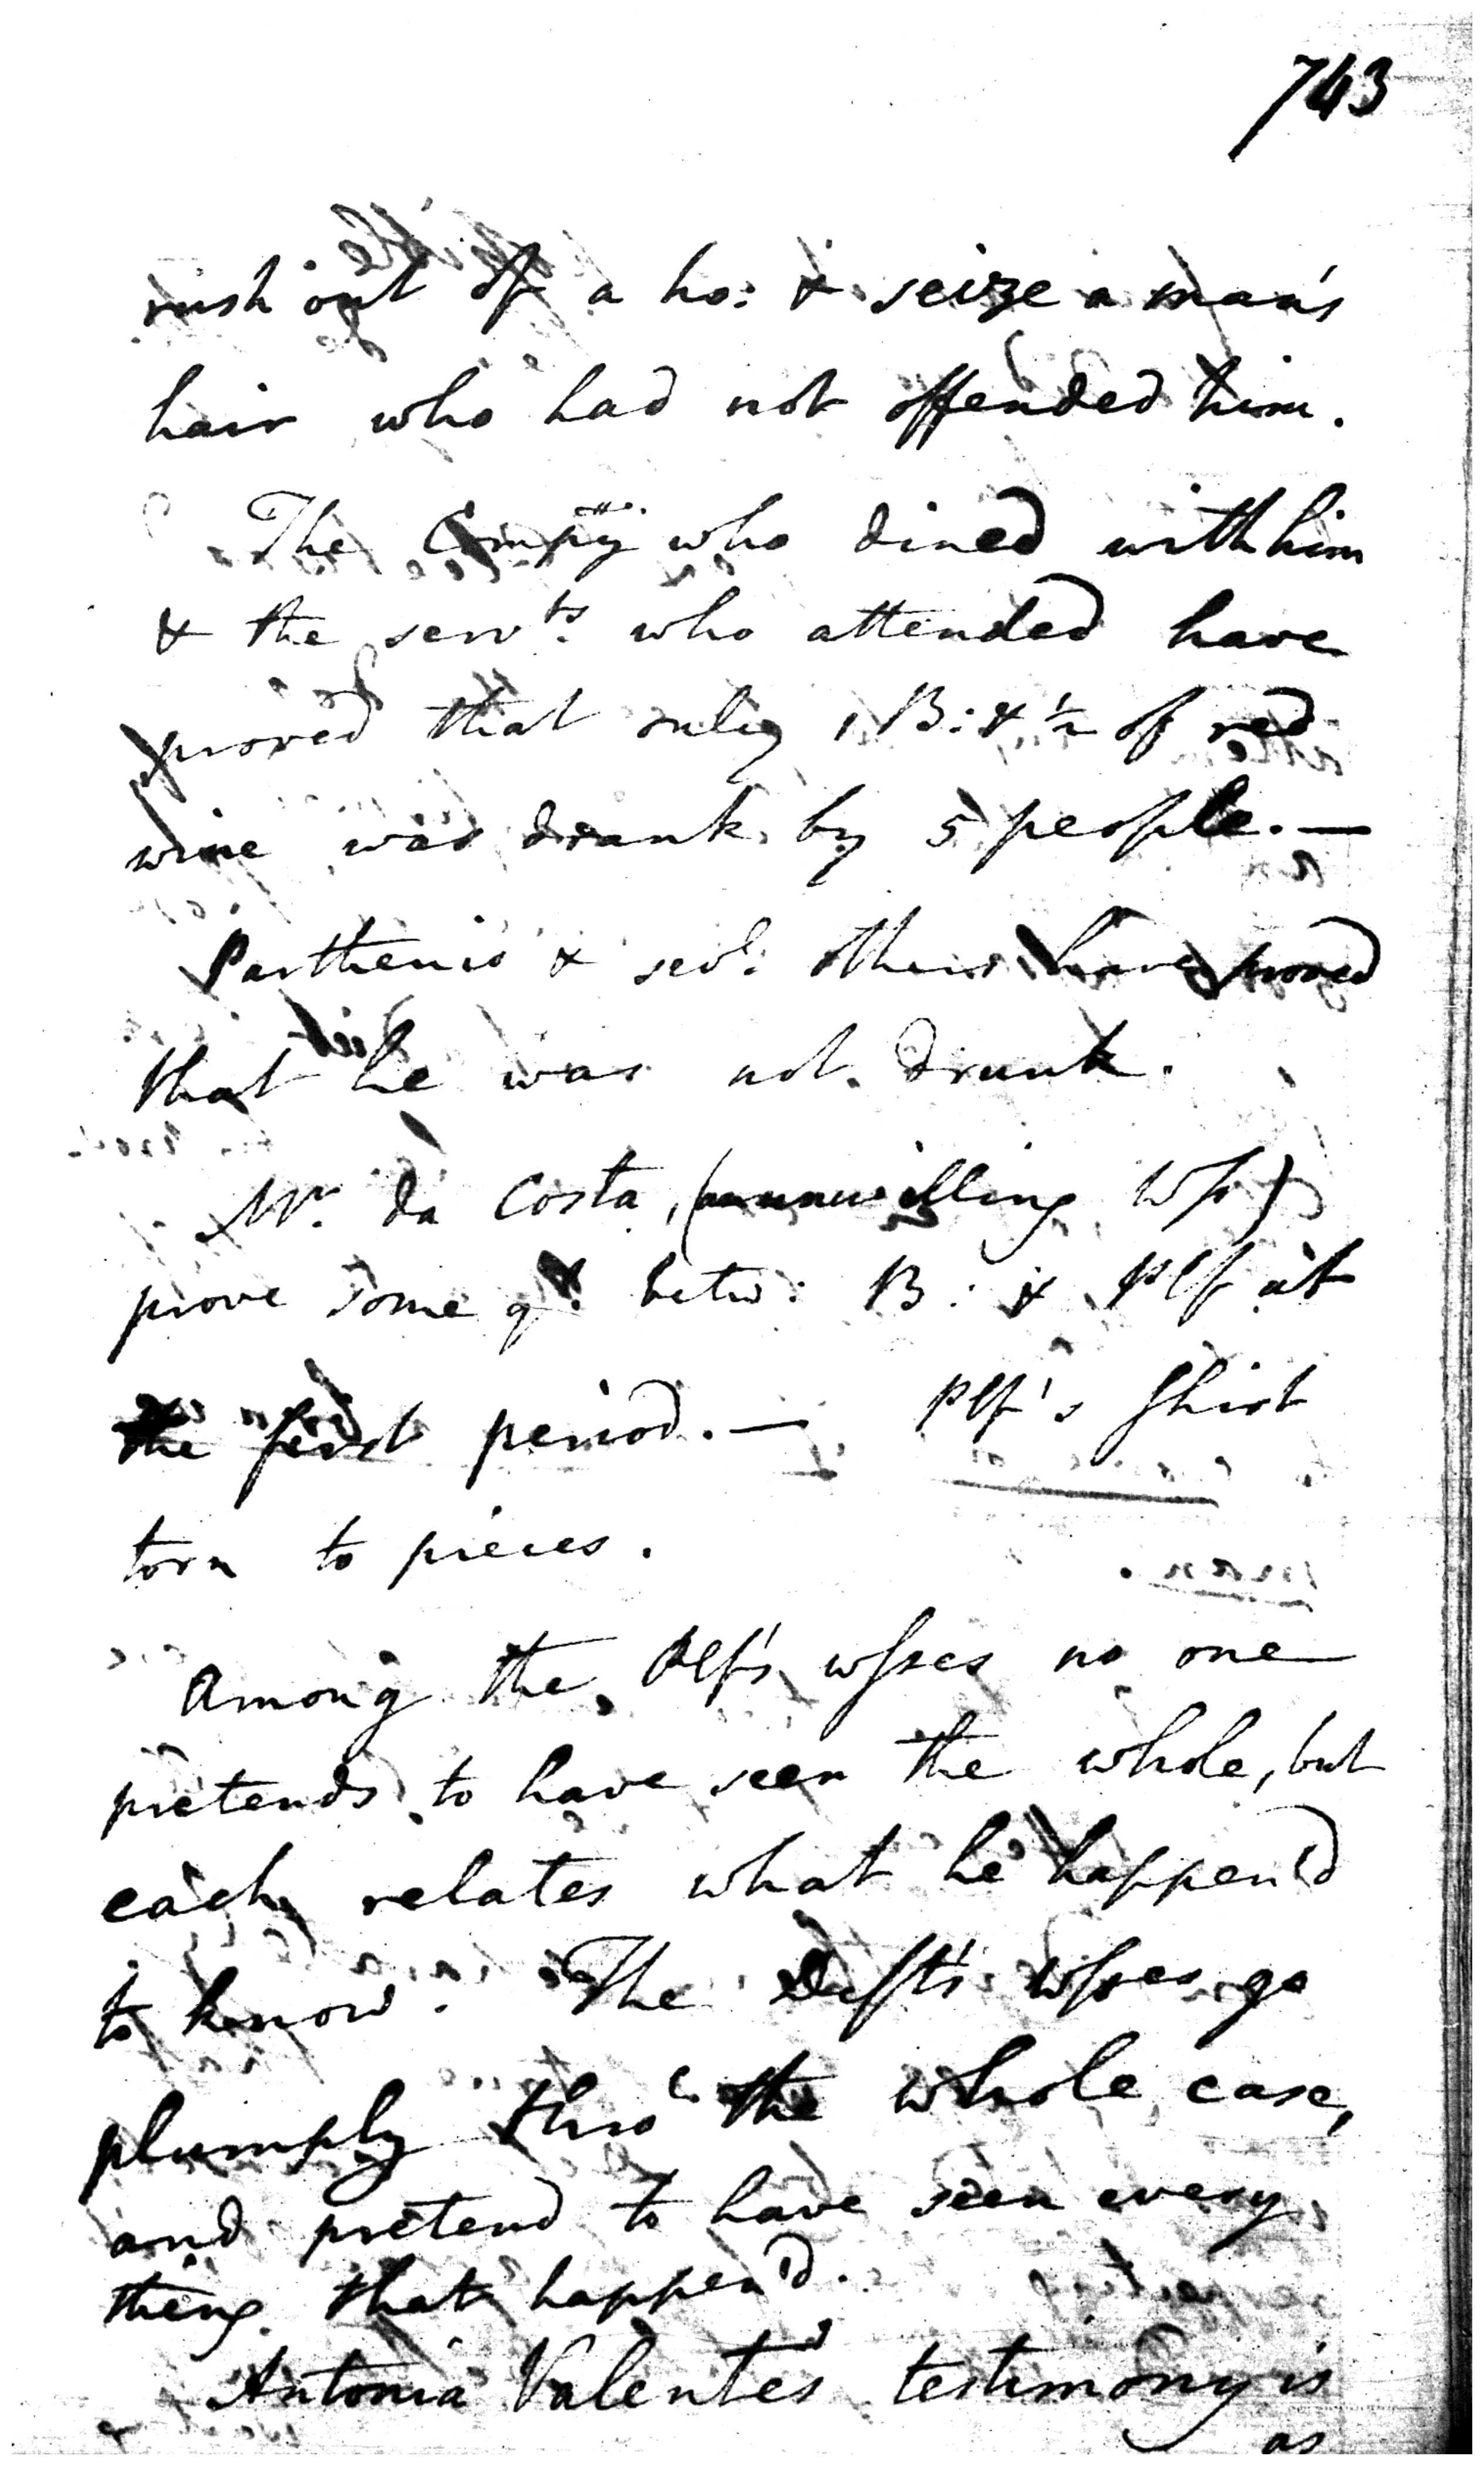 743
rush out of a ho: & seize a man's
hair who had not offended him.
The Compy who dined with him
& the servts. who attended have
proved that only 1 B: & ½ of red
wine was drank by 5 people. —
Parthenio & sevl: others have proved
that he was not drunk.
Mr. da Costa, (an unwilling Wss)
prove some ql: betw: B: & Plf at
the first period. — Plf's Shirt
torn to pieces.
Among the Plf's wsses no one
pretends to have seen the whole, but
each relates what he happen'd
to know. The Dfts wsses go
plumply thro' the whole case,
and pretend to have seen every
thing that happen'd.
Antonia Valentes testimony is
as